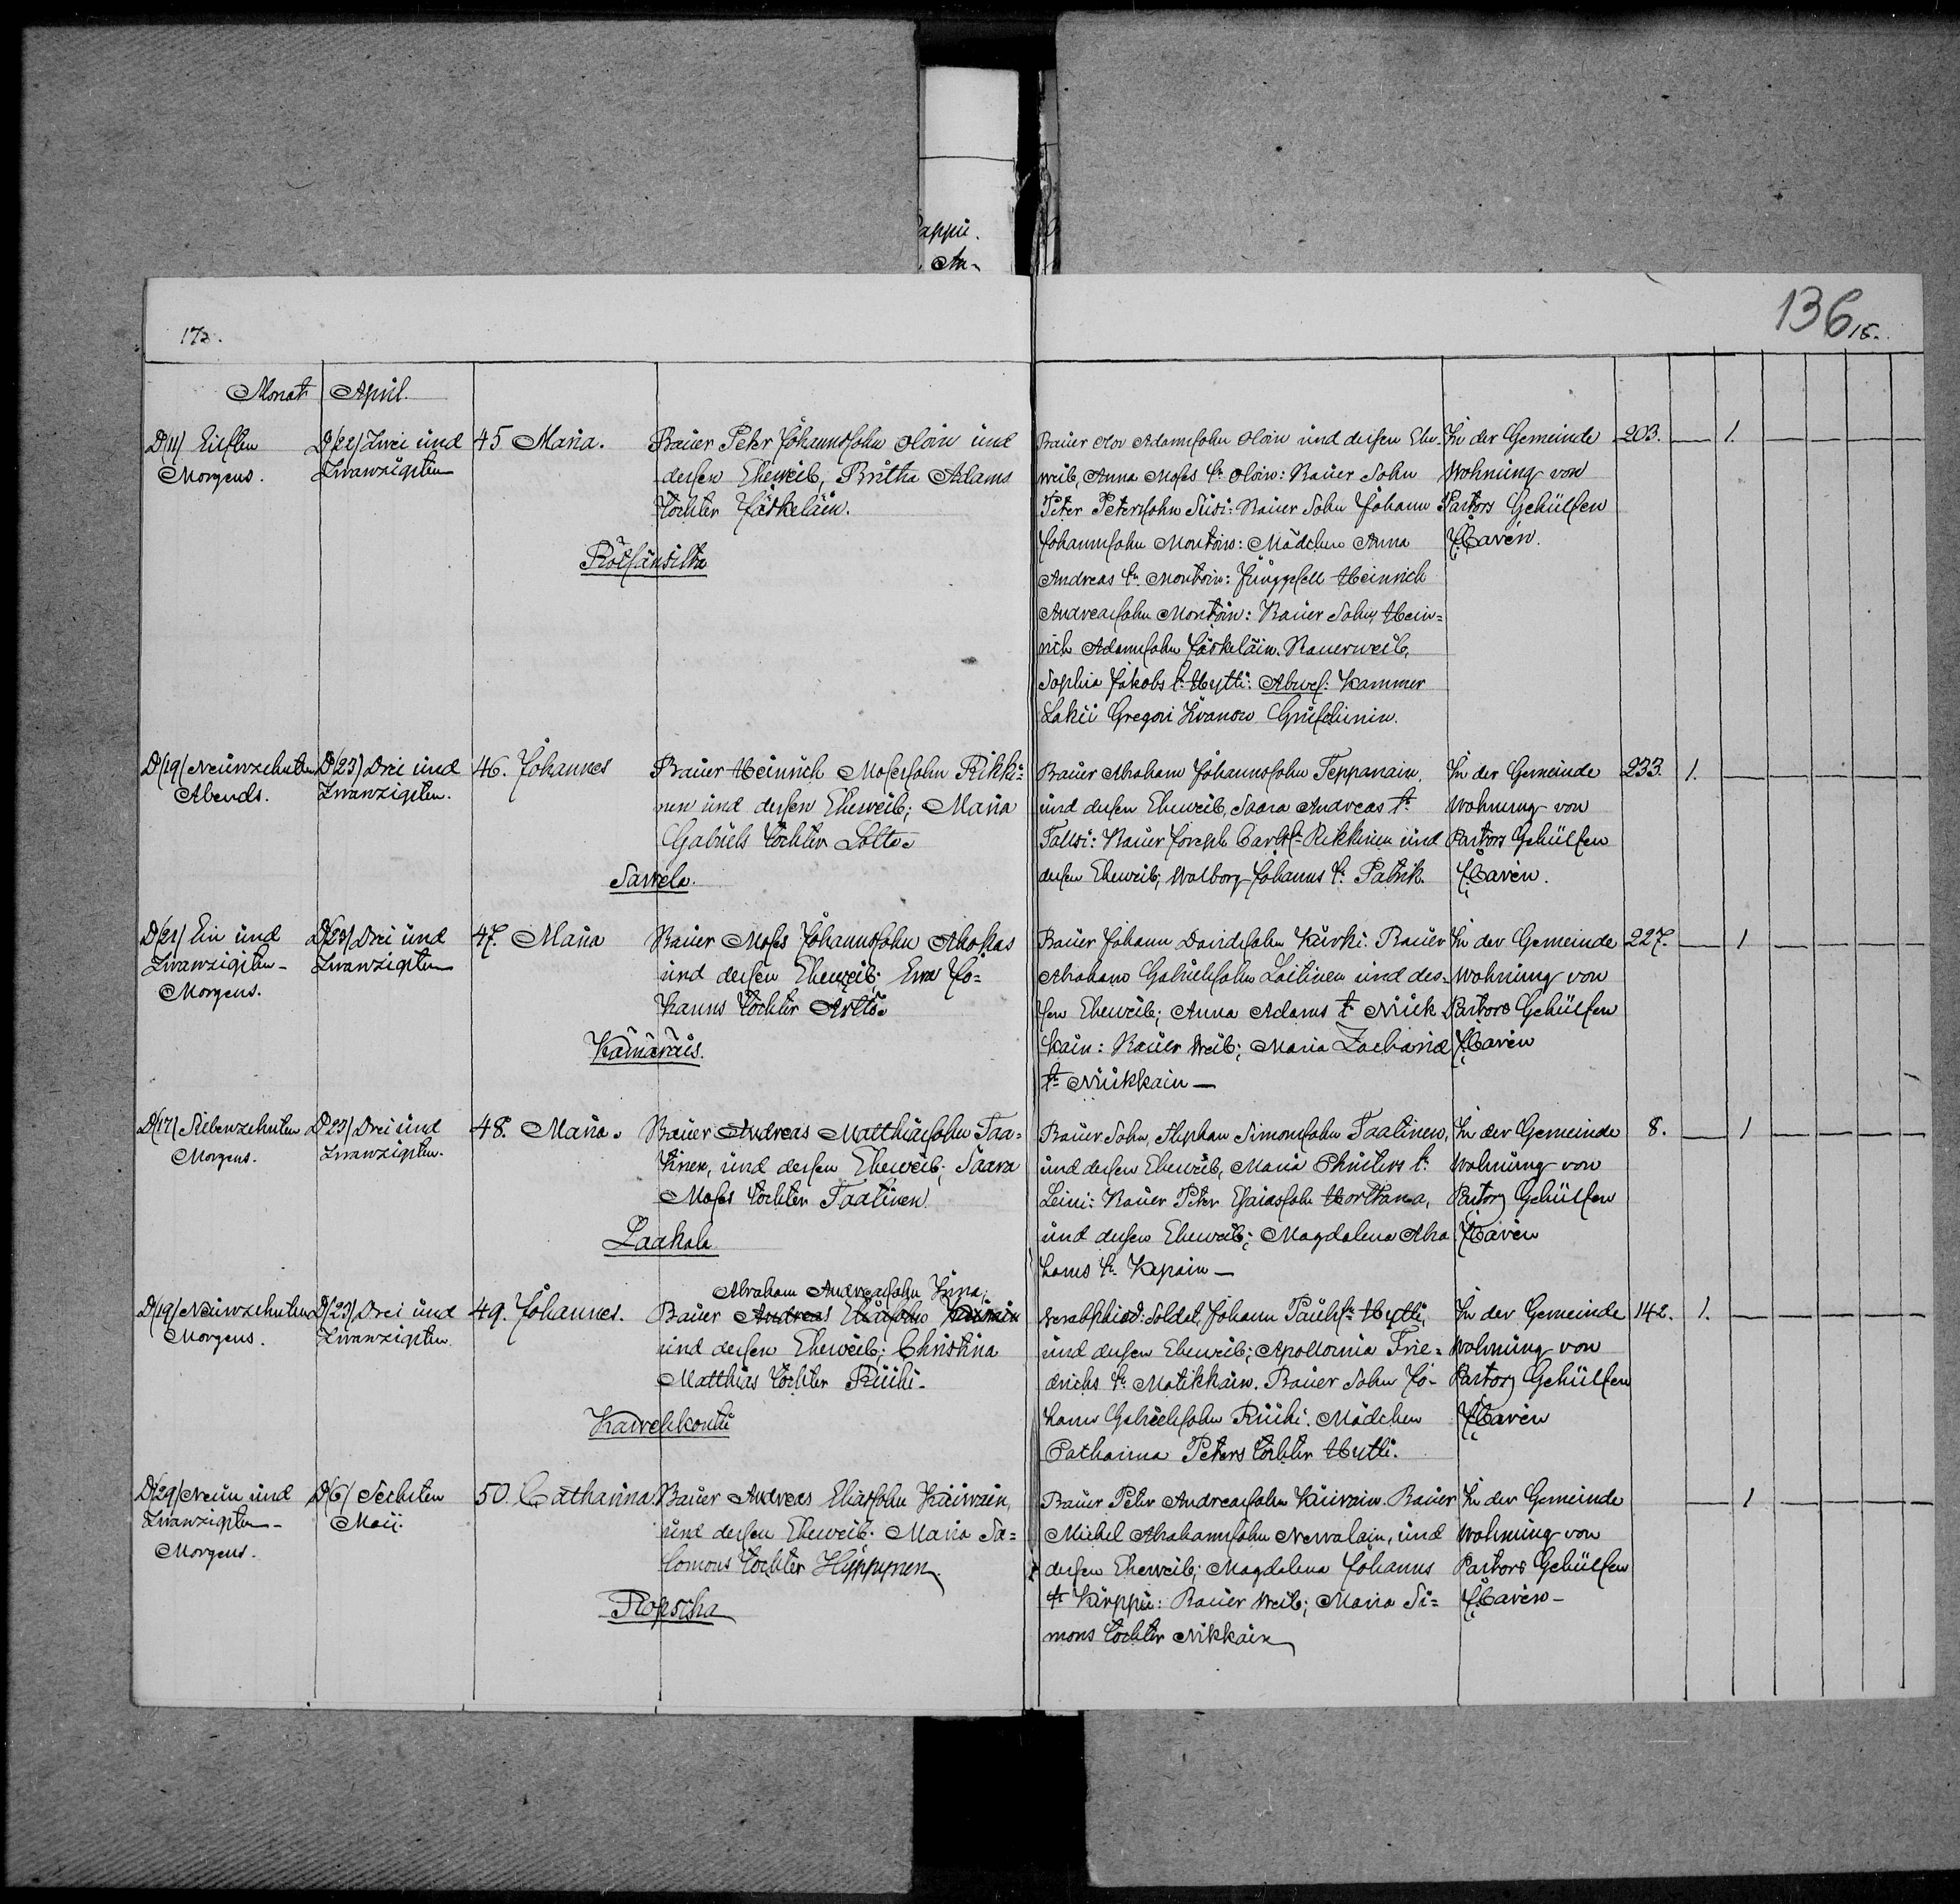 appii.
An-
136
172.
15.
Monat April.
D/11/ Eilften
Morgens.
D/22/ Zwei und
Zwanzigsten
45 Maria.
Bauer Peter Johannssohn Oloin und
dessen Eheweib, Britha Adams
Tochter Jäskeläin.
Bauer Olov Adamssohn Oloin und dessen Ehe-
weib, Anna Moses t. Oloin: Bauer Sohn
Peter Peterssohn Susi: Bauer Sohn Johann
Johannssohn Montoin: Mädchen Anna
Andreas t. Montoin: Junggesell Heinrich
Andreassohn Montoin: Bauer Sohn, Hein=
rich Adamssohn Jäskeläin. Bauerweib,
Sophia Jakobs t. Hytti: Abwes: Kammer
Lakii Gregori Ivanow
In der Gemeinde
Wohnung von
Pastors Gehülfen
Caven.
203. — 1. — — — —
D/19/ Neunzehnten
Abends.
D/23/ Drei und
Zwanzigsten.
46. Johannes
Bauer Heinrich Mosessohn Rikki=
nen und dessen Eheweib; Maria
Gabriels Tochter
Bauer Abraham Johannssohn Teppanain,
und dessen Eheweib, Saara Andreas t.
Talsi: Bauer Joseph Carls s. Rikkinen und
dessen Eheweib, Walborg Johanns t. Patrik.
In der Gemeinde
Wohnung von
Pastors Gehülfen
Caven.
233. 1. — — — — —
D/21/ Ein und
Zwanzigsten-
Morgens.
D/23/ Drei und
Zwanzigsten
47. Maria
Bauer Moses Johannssohn Ahokas
und dessen Eheweib; Eva Jo=
hanns Tochter
Bauer Johann Davidssohn Kurki. Bauer
Abraham Gabrielssohn Laitinen und des-
sen Eheweib; Anna Adams t. Nuik
kain: Bauer Weib; Maria Zacharia
t. Nuikkain —
In der Gemeinde
Wohnung von
Pastors Gehülfen
Caven
227. — 1 — — — —
D/17/ Siebenzehnten
Morgens.
D/23/ Drei und
Zwanzigsten.
48. Maria.
Bauer Andreas Matthiassohn Taa=
tinen, und dessen Eheweib; Saara
Moses Tochter Taatinen.
Laakala
Bauer Sohn, Stephan Simonssohn Taalinen,
und dessen Eheweib, Maria t.
Leini: Bauer Peter Esaiassohn Hortana,
und dessen Eheweib; Magdalena Abra
hams t. Kapain —
In der Gemeinde
Wohnung von
Pastors Gehülfen
Caven
8. — 1 — — — —
D/19/ Neunzehnten
Morgens.
D/23/ Drei und
Zwanzigsten.
49. Johannes.
Abraham Andreassohn
Bauer Andreas Eliassohn
und dessen Eheweib; Christina
Matthias Tochter Riihi-
Soldat, Johann Pauls s. Hytti,
und dessen Eheweib; Apollonia Frie=
drichs t. Matikkain. Bauer Sohn Jo-
hann Gabrielssohn Riihi. Mädchen
Catharina Peters Tochter Hytti.
In der Gemeinde
Wohnung von
Pastors Gehülfen
Caven
142. 1. — — — — —
D/29/ Neun und
Zwanzigsten-
Morgens.
D/6/ Sechsten
Maii.
50. Catharina.
Bauer Andreas Eliassohn Kuivain,
und dessen Eheweib. Maria Sa=
lomons Tochter Hyppynen.
Ropscha
Bauer Peter Andreassohn Kuivain. Bauer
Michel Abrahamssohn Nevalain, und
dessen Eheweib; Magdalena Johanns
t. Kirppu: Bauer Weib; Maria Si=
mons Tochter Nikkain
In der Gemeinde
Wohnung von
Pastors Gehülfen
Caven-
— 1 — — — —